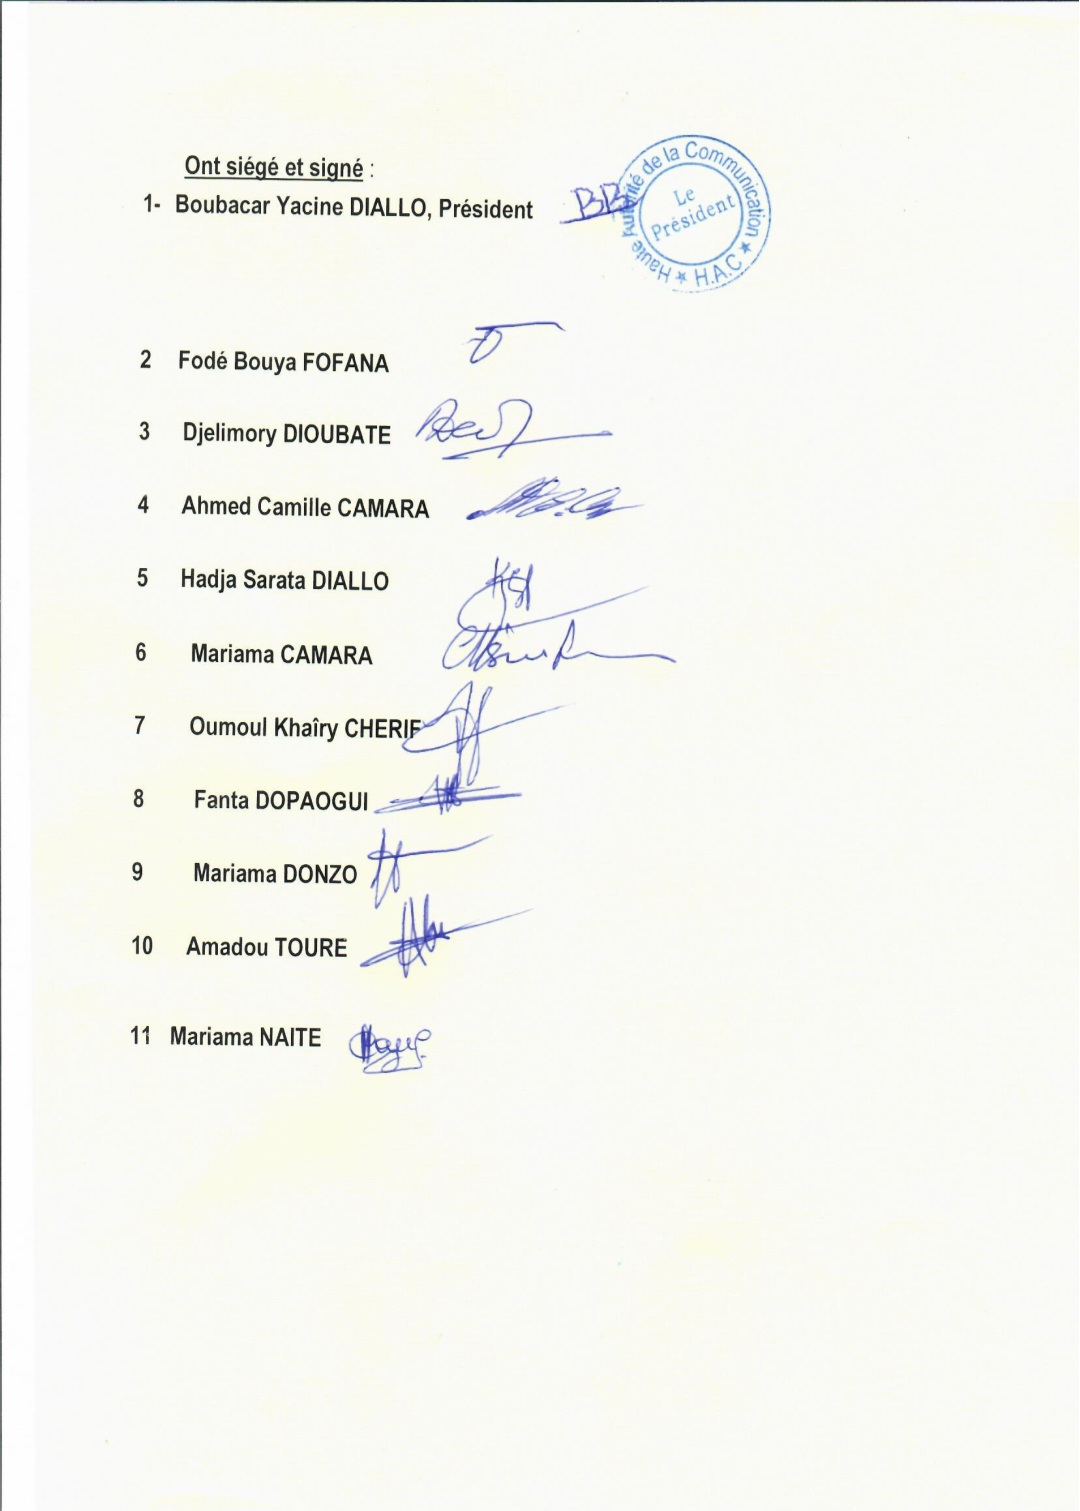 Ont siégé et signé :
1- Boubacar Yacine DIALLO, Président
Haute Autorité de la Communication
★ H.A.C ★
Le
Président
2 Fodé Bouya FOFANA
3 Djelimory DIOUBATE
4 Ahmed Camille CAMARA
5 Hadja Sarata DIALLO
6 Mariama CAMARA
7 Oumoul Khaîry CHERIF
8 Fanta DOPAOGUI
9 Mariama DONZO
10 Amadou TOURE
11 Mariama NAITE